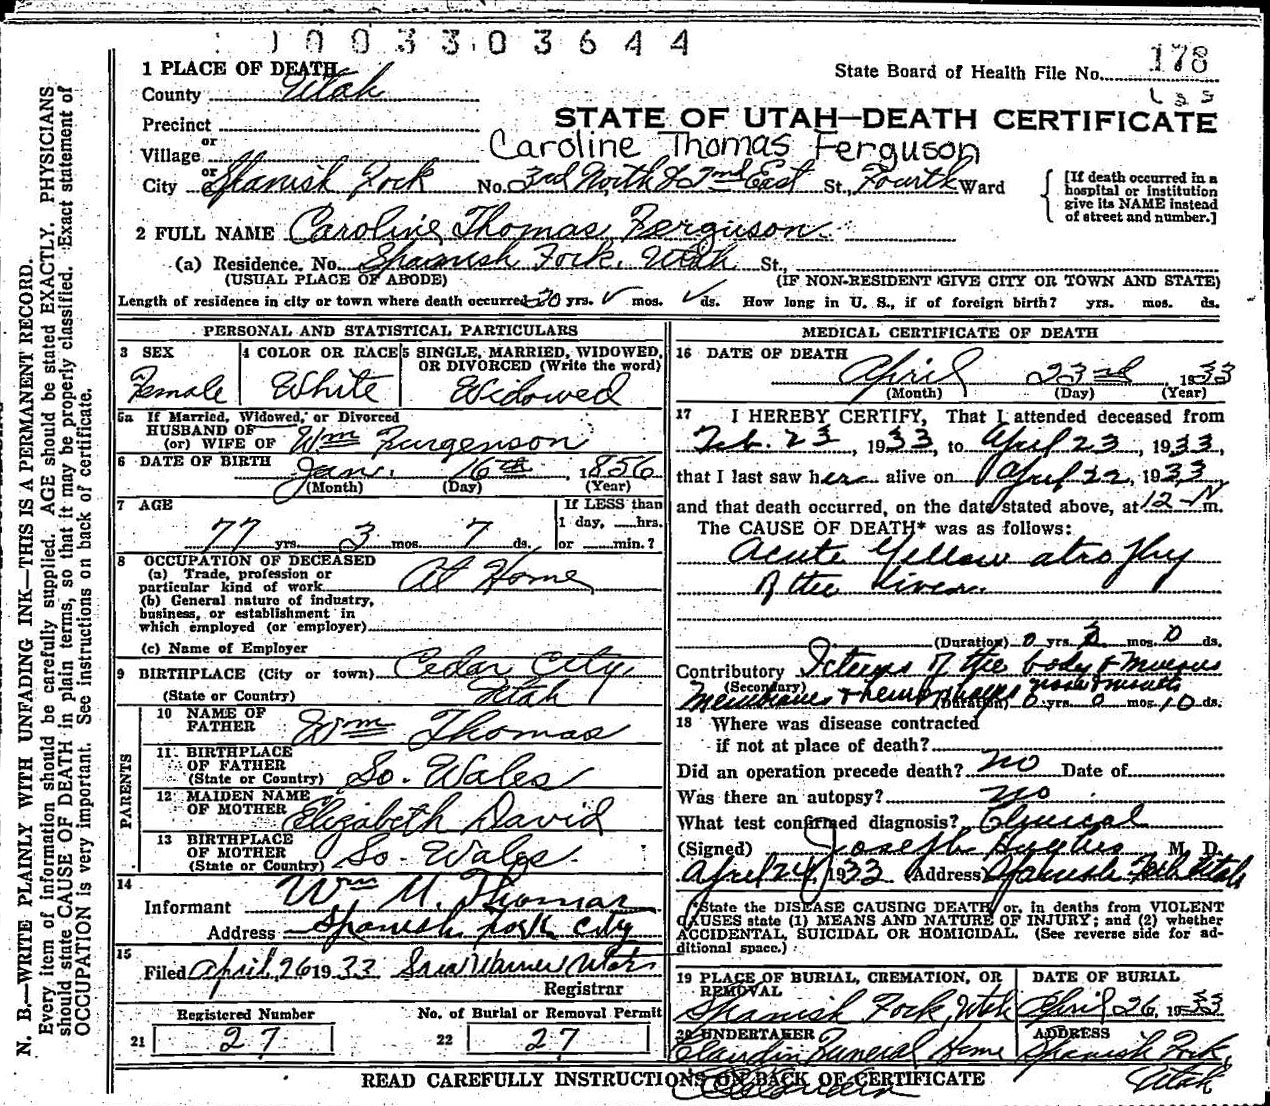 1003303644
1 PLACE OF DEATH
County Utah
State Board of Health File No. 178
Precinct
STATE OF UTAH—DEATH CERTIFICATE
or
Village
Caroline Thomas Ferguson
or
City Spanish Fork No. 3rd North & 2nd East St., Fourth Ward
[If death occurred in a
hospital or institution
give its NAME instead
of street and number.]
2 FULL NAME Caroline Thomas Ferguson
(a) Residence. No. Spanish Fork, Utah St.,
(USUAL PLACE OF ABODE) (IF NON-RESIDENT GIVE CITY OR TOWN AND STATE)
Length of residence in city or town where death occurred yrs. mos. ds. How long in U. S., if of foreign birth? yrs. mos. ds.
PERSONAL AND STATISTICAL PARTICULARS
3 SEX
Female
4 COLOR OR RACE
White
5 SINGLE, MARRIED, WIDOWED,
OR DIVORCED (Write the word)
Widowed
5a If Married, Widowed, or Divorced
HUSBAND OF
(or) WIFE OF Wm Furgenson
6 DATE OF BIRTH Jan. 16th, 1856
(Month) (Day) (Year)
7 AGE
77 yrs. 3 mos. 7 ds.
If LESS than
1 day, hrs.
or min.?
8 OCCUPATION OF DECEASED
(a) Trade, profession or
particular kind of work At Home
(b) General nature of industry,
business, or establishment in
which employed (or employer)
(c) Name of Employer
9 BIRTHPLACE (City or town) Cedar City,
(State or Country) Utah
PARENTS
10 NAME OF
FATHER Wm Thomas
11 BIRTHPLACE
OF FATHER
(State or Country) So. Wales
12 MAIDEN NAME
OF MOTHER Elizabeth David
13 BIRTHPLACE
OF MOTHER
(State or Country) So. Wales.
14
Informant Wm M. Thomas
Address Spanish Fork City
15
Filed April 26 1933
Registrar
Registered Number
21 27
No. of Burial or Removal Permit
22 27
MEDICAL CERTIFICATE OF DEATH
16 DATE OF DEATH
April 23rd, 1933
(Month) (Day) (Year)
17 I HEREBY CERTIFY, That I attended deceased from
Feb. 23, 1933, to April 23, 1933,
that I last saw her alive on April 22, 1933
and that death occurred, on the date stated above, at 12-N m.
The CAUSE OF DEATH* was as follows:
Acute Yellow atrophy
of the liver.
(Duration) 0 yrs. mos. 0 ds.
Contributory Icterus of the body & mucus
(Secondary)
membranes & nose & mouth
(Duration) 0 yrs. 0 mos. 10 ds.
18 Where was disease contracted
if not at place of death?
Did an operation precede death? No Date of
Was there an autopsy? no
What test confirmed diagnosis? Clinical
(Signed) Joseph Hughes M. D.
April 24, 1933 (Address) Spanish Fork Utah
*State the DISEASE CAUSING DEATH, or, in deaths from VIOLENT
CAUSES state (1) MEANS AND NATURE OF INJURY; and (2) whether
ACCIDENTAL, SUICIDAL OR HOMICIDAL. (See reverse side for ad-
ditional space.)
19 PLACE OF BURIAL, CREMATION, OR
REMOVAL
Spanish Fork, Utah
DATE OF BURIAL
April 26, 1933
20 UNDERTAKER
Claudin Funeral Home
ADDRESS
Spanish Fork,
Utah
READ CAREFULLY INSTRUCTIONS ON BACK OF CERTIFICATE
N. B.—WRITE PLAINLY WITH UNFADING INK—THIS IS A PERMANENT RECORD.
Every item of information should be carefully supplied. AGE should be stated EXACTLY. PHYSICIANS
should state CAUSE OF DEATH in plain terms, so that it may be properly classified. Exact statement of
OCCUPATION is very important. See instructions on back of certificate.